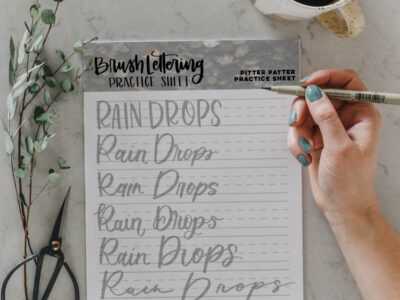 Brush Lettering
PRACTICE SHEET
PITTER PATTER
PRACTICE SHEET
RAIN DROPS
Rain Drops
Rain Drops
Rain Drops
Rain Drops
Rain Drops